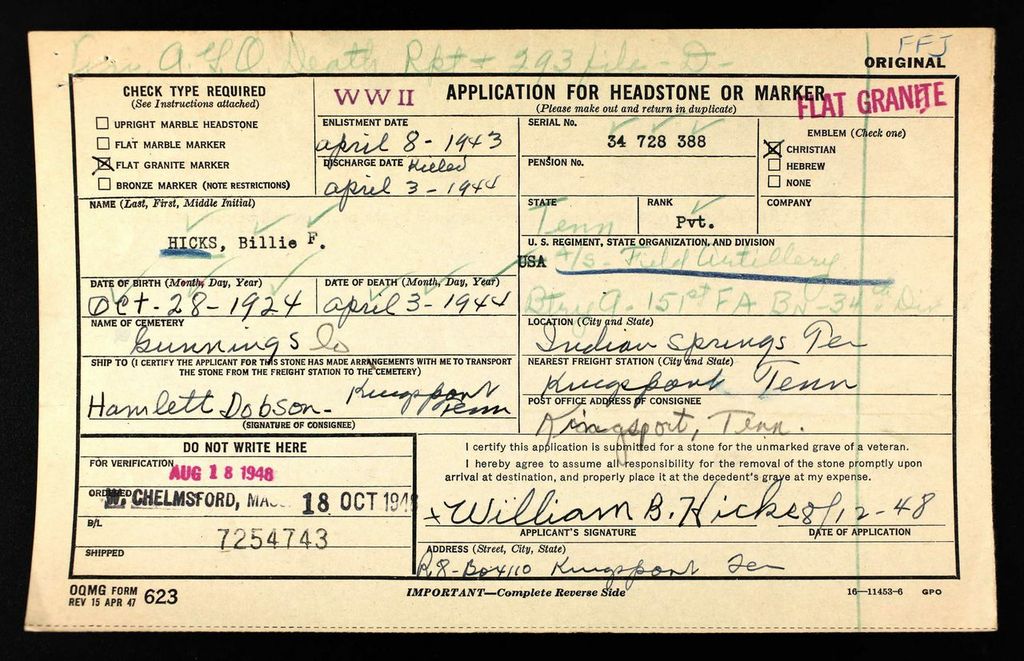 A.G.O. Death Rpt + 293 file - D -
FFJ
ORIGINAL
CHECK TYPE REQUIRED
(See Instructions attached)
UPRIGHT MARBLE HEADSTONE
FLAT MARBLE MARKER
FLAT GRANITE MARKER
BRONZE MARKER (NOTE RESTRICTIONS)
WW II
ENLISTMENT DATE
April 8 - 1943
DISCHARGE DATE Killed
April 3 - 1944
APPLICATION FOR HEADSTONE OR MARKER
(Please make out and return in duplicate)
FLAT GRANITE
SERIAL No.
34 728 388
PENSION No.
EMBLEM (Check one)
CHRISTIAN
HEBREW
NONE
NAME (Last, First, Middle Initial)
HICKS, Billie F.
STATE
Tenn
RANK
Pvt.
COMPANY
U. S. REGIMENT, STATE ORGANIZATION, AND DIVISION
USA
Field Artillery
Btry A - 151st FA Bn - 34th Div
DATE OF BIRTH (Month, Day, Year)
Oct - 28 - 1924
DATE OF DEATH (Month, Day, Year)
April 3 - 1944
NAME OF CEMETERY
Gunnings
LOCATION (City and State)
Indian Springs Ten
SHIP TO (I CERTIFY THE APPLICANT FOR THIS STONE HAS MADE ARRANGEMENTS WITH ME TO TRANSPORT
THE STONE FROM THE FREIGHT STATION TO THE CEMETERY)
Hamlett Dobson - Kingsport
Tenn
(SIGNATURE OF CONSIGNEE)
NEAREST FREIGHT STATION (City and State)
Kingsport Tenn
POST OFFICE ADDRESS OF CONSIGNEE
Kingsport, Tenn.
DO NOT WRITE HERE
FOR VERIFICATION
AUG 18 1948
ORDERED
W. CHELMSFORD, MA 18 OCT 1948
B/L
7254743
SHIPPED
I certify this application is submitted for a stone for the unmarked grave of a veteran.
I hereby agree to assume all responsibility for the removal of the stone promptly upon
arrival at destination, and properly place it at the decedent's grave at my expense.
x William B. Hicks 8/12-48
APPLICANT'S SIGNATURE
DATE OF APPLICATION
ADDRESS (Street, City, State)
R8 - Box 110 Kingsport Ten
OQMG FORM
REV 15 APR 47 623
IMPORTANT—Complete Reverse Side
16—11453-6 GPO